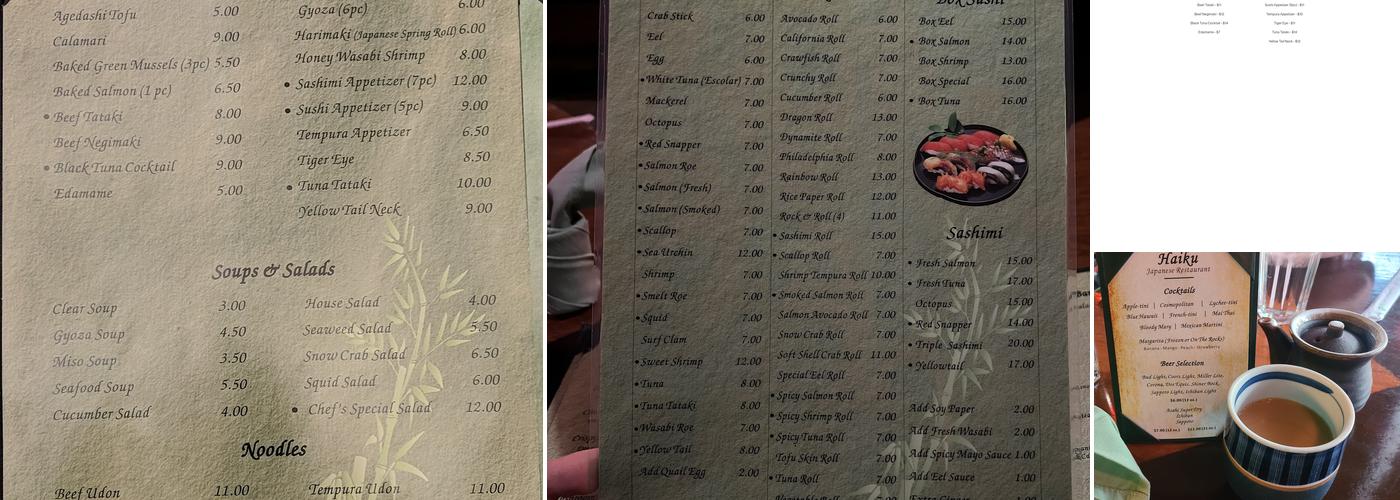 Agedashi Tofu 5.00
Calamari 9.00
Baked Green Mussels (3pc) 5.50
Baked Salmon (1 pc) 6.50
• Beef Tataki 8.00
Beef Negimaki 9.00
• Black Tuna Cocktail 9.00
Edamame 5.00
Gyoza (6pc) 6.00
Harimaki (Japanese Spring Roll) 6.00
Honey Wasabi Shrimp 8.00
• Sashimi Appetizer (7pc) 12.00
• Sushi Appetizer (5pc) 9.00
Tempura Appetizer 6.50
Tiger Eye 8.50
• Tuna Tataki 10.00
Yellow Tail Neck 9.00
Soups & Salads
Clear Soup 3.00
Gyoza Soup 4.50
Miso Soup 3.50
Seafood Soup 5.50
Cucumber Salad 4.00
House Salad 4.00
Seaweed Salad 5.50
Snow Crab Salad 6.50
Squid Salad 6.00
• Chef's Special Salad 12.00
Noodles
Beef Udon 11.00
Tempura Udon 11.00
Crab Stick 6.00
Eel 7.00
Egg 6.00
• White Tuna (Escolar) 7.00
Mackerel 7.00
Octopus 7.00
• Red Snapper 7.00
• Salmon Roe 7.00
• Salmon (Fresh) 7.00
• Salmon (Smoked) 7.00
• Scallop 7.00
• Sea Urchin 12.00
Shrimp 7.00
• Smelt Roe 7.00
• Squid 7.00
Surf Clam 7.00
• Sweet Shrimp 12.00
• Tuna 8.00
• Tuna Tataki 8.00
• Wasabi Roe 7.00
• Yellow Tail 8.00
Add Quail Egg 2.00
Avocado Roll 6.00
California Roll 7.00
Crawfish Roll 7.00
Crunchy Roll 7.00
Cucumber Roll 6.00
Dragon Roll 13.00
Dynamite Roll 7.00
Philadelphia Roll 8.00
Rainbow Roll 13.00
Rice Paper Roll 12.00
Rock & Roll (4) 11.00
• Sashimi Roll 15.00
• Scallop Roll 7.00
Shrimp Tempura Roll 10.00
• Smoked Salmon Roll 7.00
Salmon Avocado Roll 7.00
Snow Crab Roll 7.00
Soft Shell Crab Roll 11.00
Special Eel Roll 7.00
• Spicy Salmon Roll 7.00
• Spicy Shrimp Roll 7.00
• Spicy Tuna Roll 7.00
Tofu Skin Roll 7.00
• Tuna Roll 7.00
Vegetable Roll
Box Sushi
Box Eel 15.00
• Box Salmon 14.00
Box Shrimp 13.00
Box Special 16.00
• Box Tuna 16.00
Sashimi
• Fresh Salmon 15.00
• Fresh Tuna 17.00
Octopus 15.00
• Red Snapper 14.00
• Triple Sashimi 20.00
• Yellowtail 17.00
Add Soy Paper 2.00
Add Fresh Wasabi 2.00
Add Spicy Mayo Sauce 1.00
Add Eel Sauce 1.00
Extra Ginger
Beef Tataki - $11
Beef Negimaki - $12
Black Tuna Cocktail - $14
Edamame - $7
Sushi Appetizer (5pc) - $11
Tempura Appetizer - $10
Tiger Eye - $11
Tuna Tataki - $14
Yellow Tail Neck - $12
Haiku
Japanese Restaurant
Cocktails
Apple-tini | Cosmopolitan | Lychee-tini
Blue Hawaii | French-tini | Mai Thai
Bloody Mary | Mexican Martini
Margarita (Frozen or On The Rocks)
Banana · Mango · Peach · Strawberry
Beer Selection
Bud Light, Coors Light, Miller Lite,
Corona, Dos Equis, Shiner Bock,
Sapporo Light, Ichiban Light
Asahi Super Dry
Ichiban
Sapporo